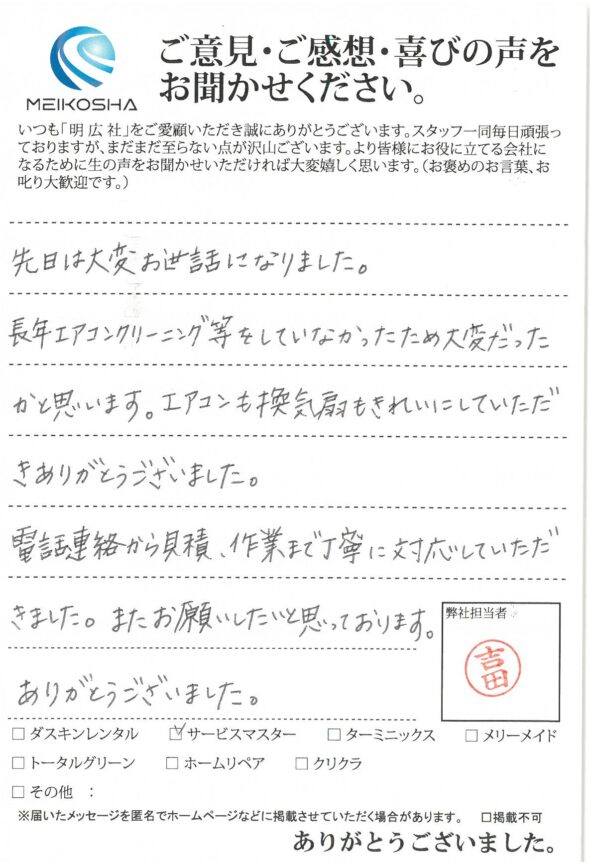 MEIKOSHA
ご意見・ご感想・喜びの声を
お聞かせください。
いつも「明広社」をご愛顧いただき誠にありがとうございます。スタッフ一同毎日頑張っ
ておりますが、まだまだ至らない点が沢山ございます。より皆様にお役に立てる会社に
なるために生の声をお聞かせいただければ大変嬉しく思います。（お褒めのお言葉、お
叱り大歓迎です。）
先日は大変お世話になりました。
長年エアコンクリーニング等をしていなかったため大変だった
かと思います。エアコンも換気扇もきれいにしていただ
きありがとうございました。
電話連絡から見積、作業まで丁寧に対応していただ
きました。またお願いしたいと思っております。
ありがとうございました。
弊社担当者
吉田
□ ダスキンレンタル ☑ サービスマスター □ ターミニックス □ メリーメイド
□ トータルグリーン □ ホームリペア □ クリクラ
□ その他 ：
※届いたメッセージを匿名でホームページなどに掲載させていただく場合があります。 □掲載不可
ありがとうございました。